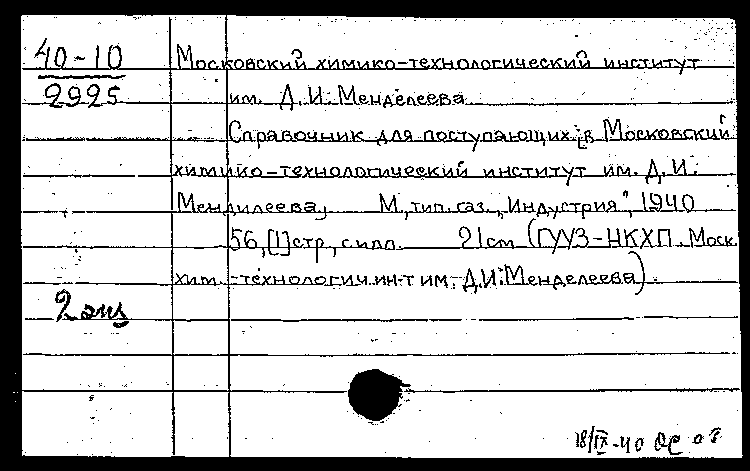 40-10
2925
Московский химико-технологический институт
им. Д.И. Менделеева
Справочник для поступающих [в Московский
химико-технологический институт им. Д.И.
Мендилеева, М., тип. газ. „Индустрия", 1940
56,[1]стр., с илл. 21см (ГУУЗ-НКХП. Моск.
хим.-технологич.ин-т им. Д.И. Менделеева).
2 экз
18/IX-40